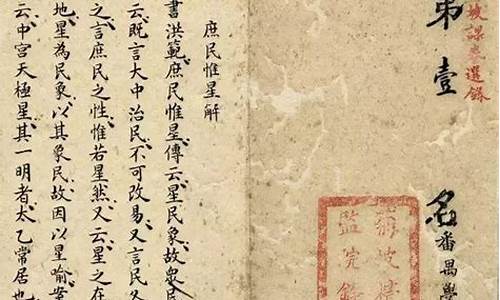 坡課卷選錄
第壹名
番禺學
菊坡精
監院
庶民惟星解
書洪範庶民惟星傳云星民象故眾民
云既言大中治民不可改易又言民
之言庶民之性惟若星然又云星之在
地星為民象以其象民故因以星喻案
云中宮天極星其一明者太乙常居也